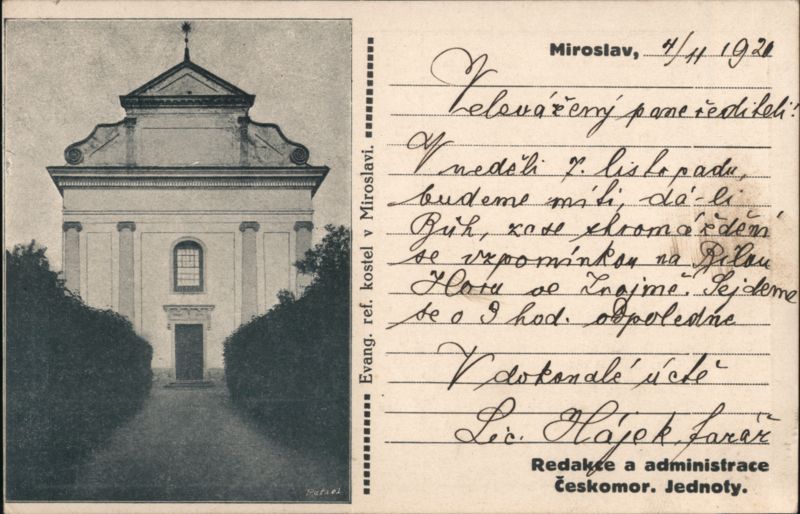 Evang. ref. kostel v Miroslavi.
Miroslav, 4/11 1920
Velevážený pane řediteli!
V neděli 7. listopadu,
budeme míti, dá-li
Bůh, zase shromáždění
se vzpomínkou na Bílou
Horu ve Znojmě. Sejdeme
se o 3 hod. odpoledne
V dokonalé úctě
Lic. Hájek, farář
Redakce a administrace
Českomor. Jednoty.